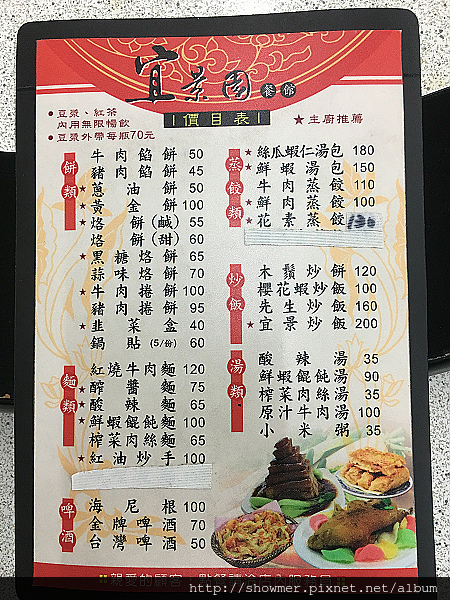 宜景園 餐館
價目表
● 豆漿、紅茶
內用無限暢飲
● 豆漿外帶每瓶70元
★ 主廚推薦
餅類
牛肉餡餅 50
豬肉餡餅 45
★ 蔥油餅 50
★ 黃金餅 100
★ 烙餅(鹹) 55
烙餅(甜) 60
★ 黑糖烙餅 65
蒜味烙餅 70
★ 牛肉捲餅 100
豬肉捲餅 95
★ 韭菜盒 40
鍋貼(5/份) 60
麵類
紅燒牛肉麵 120
★ 醡醬麵 75
★ 酸辣麵 65
★ 鮮蝦餛飩麵 100
榨菜肉絲麵 65
★ 紅油炒手 100
啤酒
海尼根 100
金牌啤酒 70
台灣啤酒 50
蒸餃類
★ 絲瓜蝦仁湯包 180
★ 鮮蝦湯包 150
★ 牛肉蒸餃 110
★ 鮮肉蒸餃 100
★ 花素蒸餃 130
炒飯
木鬚炒餅 120
櫻花蝦炒飯 100
先生炒飯 160
★ 宜景炒飯 200
湯類
酸辣湯 35
鮮蝦餛飩湯 90
榨菜肉絲湯 35
原汁牛肉湯 100
小米粥 35
http://showmer.pixnet.net/album